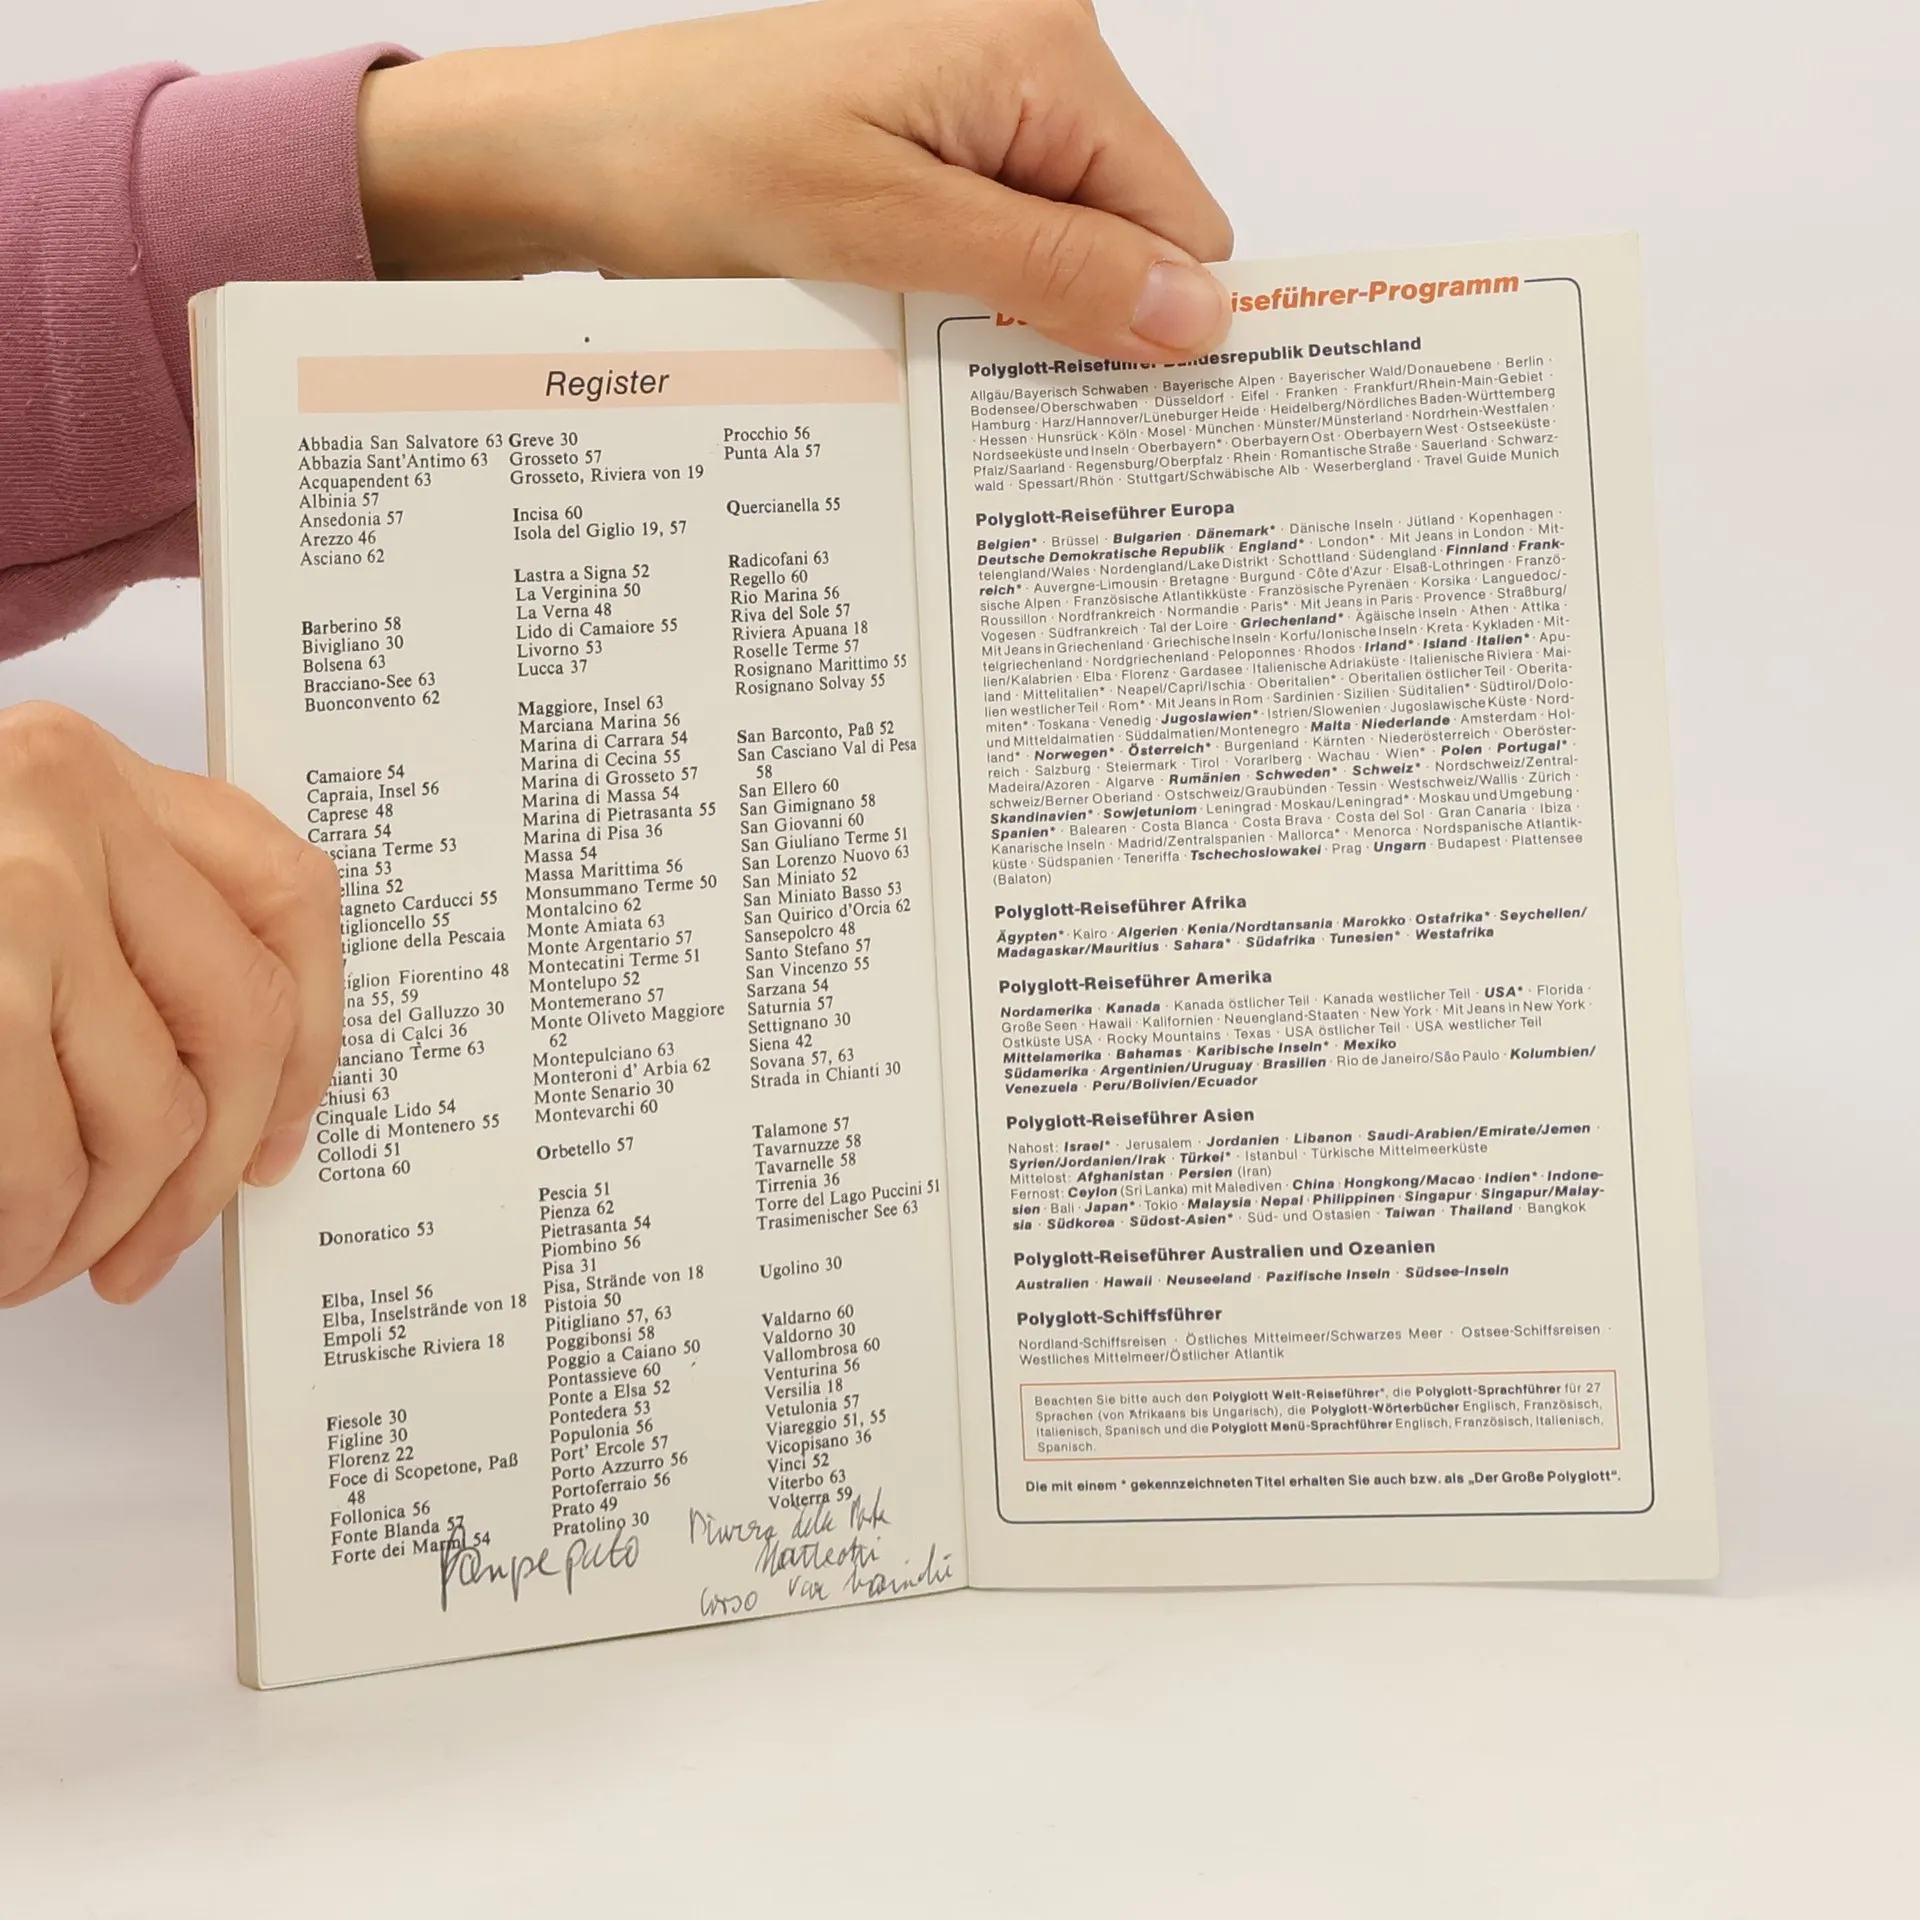 Register
Abbadia San Salvatore 63
Abbazia Sant'Antimo 63
Acquapendent 63
Albinia 57
Ansedonia 57
Arezzo 46
Asciano 62
Barberino 58
Bivigliano 30
Bolsena 63
Bracciano-See 63
Buonconvento 62
Camaiore 54
Capraia, Insel 56
Caprese 48
Carrara 54
sciana Terme 53
cina 53
ellina 52
tagneto Carducci 55
tiglioncello 55
tiglione della Pescaia
iglion Fiorentino 48
na 55, 59
tosa del Galluzzo 30
tosa di Calci 36
anciano Terme 63
hianti 30
Chiusi 63
Cinquale Lido 54
Colle di Montenero 55
Collodi 51
Cortona 60
Donoratico 53
Elba, Insel 56
Elba, Inselstrände von 18
Empoli 52
Etruskische Riviera 18
Fiesole 30
Figline 30
Florenz 22
Foce di Scopetone, Paß
48
Follonica 56
Fonte Blanda 57
Forte dei Marmi 54
Greve 30
Grosseto 57
Grosseto, Riviera von 19
Incisa 60
Isola del Giglio 19, 57
Lastra a Signa 52
La Verginina 50
La Verna 48
Lido di Camaiore 55
Livorno 53
Lucca 37
Maggiore, Insel 63
Marciana Marina 56
Marina di Carrara 54
Marina di Cecina 55
Marina di Grosseto 57
Marina di Massa 54
Marina di Pietrasanta 55
Marina di Pisa 36
Massa 54
Massa Marittima 56
Monsummano Terme 50
Montalcino 62
Monte Amiata 63
Monte Argentario 57
Montecatini Terme 51
Montelupo 52
Montemerano 57
Monte Oliveto Maggiore
62
Montepulciano 63
Monteroni d' Arbia 62
Monte Senario 30
Montevarchi 60
Orbetello 57
Pescia 51
Pienza 62
Pietrasanta 54
Piombino 56
Pisa 31
Pisa, Strände von 18
Pistoia 50
Pitigliano 57, 63
Poggibonsi 58
Poggio a Caiano 50
Pontassieve 60
Ponte a Elsa 52
Pontedera 53
Populonia 56
Port' Ercole 57
Porto Azzurro 56
Portoferraio 56
Prato 49
Pratolino 30
Procchio 56
Punta Ala 57
Quercianella 55
Radicofani 63
Regello 60
Rio Marina 56
Riva del Sole 57
Riviera Apuana 18
Roselle Terme 57
Rosignano Marittimo 55
Rosignano Solvay 55
San Barconto, Paß 52
San Casciano Val di Pesa
58
San Ellero 60
San Gimignano 58
San Giovanni 60
San Giuliano Terme 51
San Lorenzo Nuovo 63
San Miniato 52
San Miniato Basso 53
San Quirico d'Orcia 62
Sansepolcro 48
Santo Stefano 57
San Vincenzo 55
Sarzana 54
Saturnia 57
Settignano 30
Siena 42
Sovana 57, 63
Strada in Chianti 30
Talamone 57
Tavarnuzze 58
Tavarnelle 58
Tirrenia 36
Torre del Lago Puccini 51
Trasimenischer See 63
Ugolino 30
Valdarno 60
Valdorno 30
Vallombrosa 60
Venturina 56
Versilia 18
Vetulonia 57
Viareggio 51, 55
Vicopisano 36
Vinci 52
Viterbo 63
Volterra 59
Matteotti
Corso
iseführer-Programm
Polyglott-Reiseführer Bundesrepublik Deutschland
Allgäu/Bayerisch Schwaben · Bayerische Alpen · Bayerischer Wald/Donauebene · Berlin ·
Bodensee/Oberschwaben · Düsseldorf · Eifel · Franken · Frankfurt/Rhein-Main-Gebiet ·
Hamburg · Harz/Hannover/Lüneburger Heide · Heidelberg/Nördliches Baden-Württemberg
· Hessen · Hunsrück · Köln · Mosel · München · Münster/Münsterland · Nordrhein-Westfalen ·
Nordseeküste und Inseln · Oberbayern* · Oberbayern Ost · Oberbayern West · Ostseeküste ·
Pfalz/Saarland · Regensburg/Oberpfalz · Rhein · Romantische Straße · Sauerland · Schwarz-
wald · Spessart/Rhön · Stuttgart/Schwäbische Alb · Weserbergland · Travel Guide Munich
Polyglott-Reiseführer Europa
Belgien* · Brüssel · Bulgarien · Dänemark* · Dänische Inseln · Jütland · Kopenhagen ·
Deutsche Demokratische Republik · England* · London* · Mit Jeans in London · Mit-
telengland/Wales · Nordengland/Lake Distrikt · Schottland · Südengland · Finnland · Frank-
reich* · Auvergne-Limousin · Bretagne · Burgund · Côte d'Azur · Elsaß-Lothringen · Franzö-
sische Alpen · Französische Atlantikküste · Französische Pyrenäen · Korsika · Languedoc/-
Roussillon · Nordfrankreich · Normandie · Paris* · Mit Jeans in Paris · Provence · Straßburg/
Vogesen · Südfrankreich · Tal der Loire · Griechenland* · Ägäische Inseln · Athen · Attika ·
Mit Jeans in Griechenland · Griechische Inseln · Korfu/Ionische Inseln · Kreta · Kykladen · Mit-
telgriechenland · Nordgriechenland · Peloponnes · Rhodos · Irland* · Island · Italien* · Apu-
lien/Kalabrien · Elba · Florenz · Gardasee · Italienische Adriaküste · Italienische Riviera · Mai-
land · Mittelitalien* · Neapel/Capri/Ischia · Oberitalien* · Oberitalien östlicher Teil · Oberita-
lien westlicher Teil · Rom* · Mit Jeans in Rom · Sardinien · Sizilien · Süditalien* · Südtirol/Dolo-
miten* · Toskana · Venedig · Jugoslawien* · Istrien/Slowenien · Jugoslawische Küste · Nord-
und Mitteldalmatien · Süddalmatien/Montenegro · Malta · Niederlande · Amsterdam · Hol-
land* · Norwegen* · Österreich* · Burgenland · Kärnten · Niederösterreich · Oberöster-
reich · Salzburg · Steiermark · Tirol · Vorarlberg · Wachau · Wien* · Polen · Portugal* ·
Madeira/Azoren · Algarve · Rumänien · Schweden* · Schweiz* · Nordschweiz/Zentral-
schweiz/Berner Oberland · Ostschweiz/Graubünden · Tessin · Westschweiz/Wallis · Zürich ·
Skandinavien* · Sowjetuniom · Leningrad · Moskau/Leningrad* · Moskau und Umgebung ·
Spanien* · Balearen · Costa Blanca · Costa Brava · Costa del Sol · Gran Canaria · Ibiza ·
Kanarische Inseln · Madrid/Zentralspanien · Mallorca* · Menorca · Nordspanische Atlantik-
küste · Südspanien · Teneriffa · Tschechoslowakei · Prag · Ungarn · Budapest · Plattensee
(Balaton)
Polyglott-Reiseführer Afrika
Ägypten* · Kairo · Algerien · Kenia/Nordtansania · Marokko · Ostafrika* · Seychellen/
Madagaskar/Mauritius · Sahara* · Südafrika · Tunesien* · Westafrika
Polyglott-Reiseführer Amerika
Nordamerika · Kanada · Kanada östlicher Teil · Kanada westlicher Teil · USA* · Florida ·
Große Seen · Hawaii · Kalifornien · Neuengland-Staaten · New York · Mit Jeans in New York ·
Ostküste USA · Rocky Mountains · Texas · USA östlicher Teil · USA westlicher Teil
Mittelamerika · Bahamas · Karibische Inseln* · Mexiko
Südamerika · Argentinien/Uruguay · Brasilien · Rio de Janeiro/São Paulo · Kolumbien/
Venezuela · Peru/Bolivien/Ecuador
Polyglott-Reiseführer Asien
Nahost: Israel* · Jerusalem · Jordanien · Libanon · Saudi-Arabien/Emirate/Jemen ·
Syrien/Jordanien/Irak · Türkei* · Istanbul · Türkische Mittelmeerküste
Mittelost: Afghanistan · Persien (Iran)
Fernost: Ceylon (Sri Lanka) mit Malediven · China · Hongkong/Macao · Indien* · Indone-
sien · Bali · Japan* · Tokio · Malaysia · Nepal · Philippinen · Singapur · Singapur/Malay-
sia · Südkorea · Südost-Asien* · Süd- und Ostasien · Taiwan · Thailand · Bangkok
Polyglott-Reiseführer Australien und Ozeanien
Australien · Hawaii · Neuseeland · Pazifische Inseln · Südsee-Inseln
Polyglott-Schiffsführer
Nordland-Schiffsreisen · Östliches Mittelmeer/Schwarzes Meer · Ostsee-Schiffsreisen ·
Westliches Mittelmeer/Östlicher Atlantik
Beachten Sie bitte auch den Polyglott Welt-Reiseführer*, die Polyglott-Sprachführer für 27
Sprachen (von Afrikaans bis Ungarisch), die Polyglott-Wörterbücher Englisch, Französisch,
Italienisch, Spanisch und die Polyglott Menü-Sprachführer Englisch, Französisch, Italienisch,
Spanisch.
Die mit einem * gekennzeichneten Titel erhalten Sie auch bzw. als „Der Große Polyglott“.